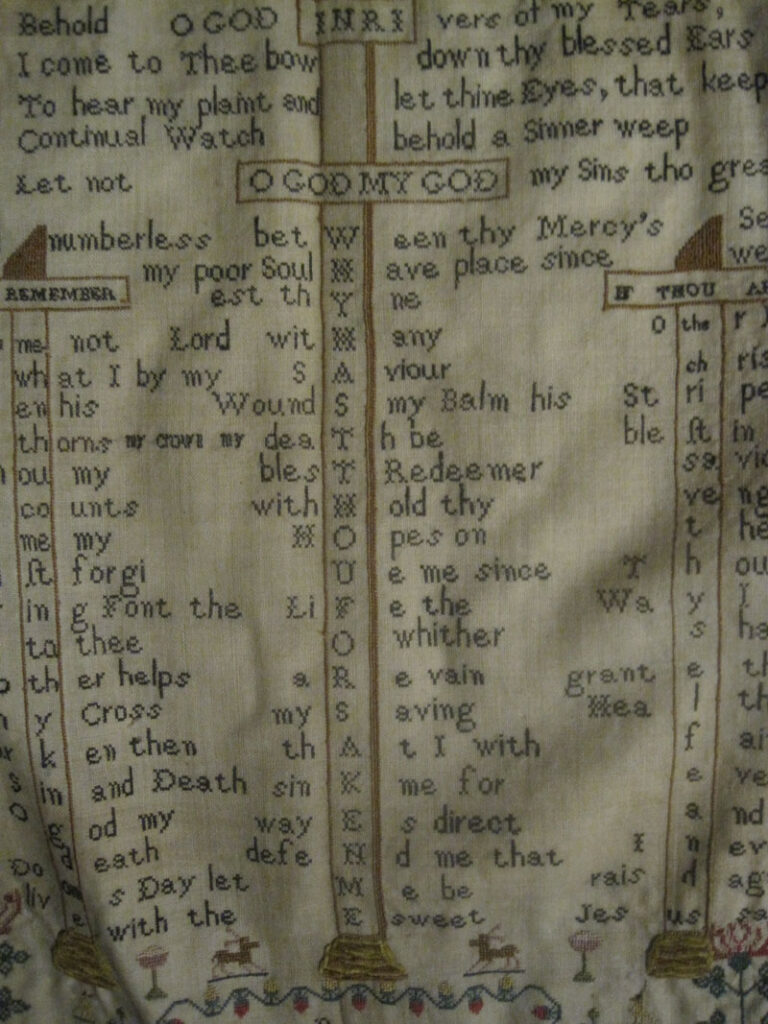 Behold O GOD INRI vers of my Tears,
I come to Thee bow down thy blessed Ears
To hear my plaint and let thine Eyes, that keep
Continual Watch behold a Sinner weep
Let not O GOD MY GOD my Sins tho
numberless bet W een thy Mercy's
my poor Soul H ave place since
REMEMBER est th Y ne IF THOU
me not Lord wit H any O the r
wh at I by my S A viour ch
en his Wound S my Balm his St ri pe
thorns my crown my dea T h be ble st in
ou my bles T Redeemer sa
co unts with H old thy ve
me my H O pes on t he
st forgi U e me since T h ou
in g Font the Li F e the Wa y I
to thee O whither s
th er helps a R e vain grant e
y Cross my S aving Hea l
k en then th A t I with f
in and Death sin K me for e
g od my way E s direct a nd
d eath defe N d me that I n
s Day let M e be rais d
e with the E sweet Jes us